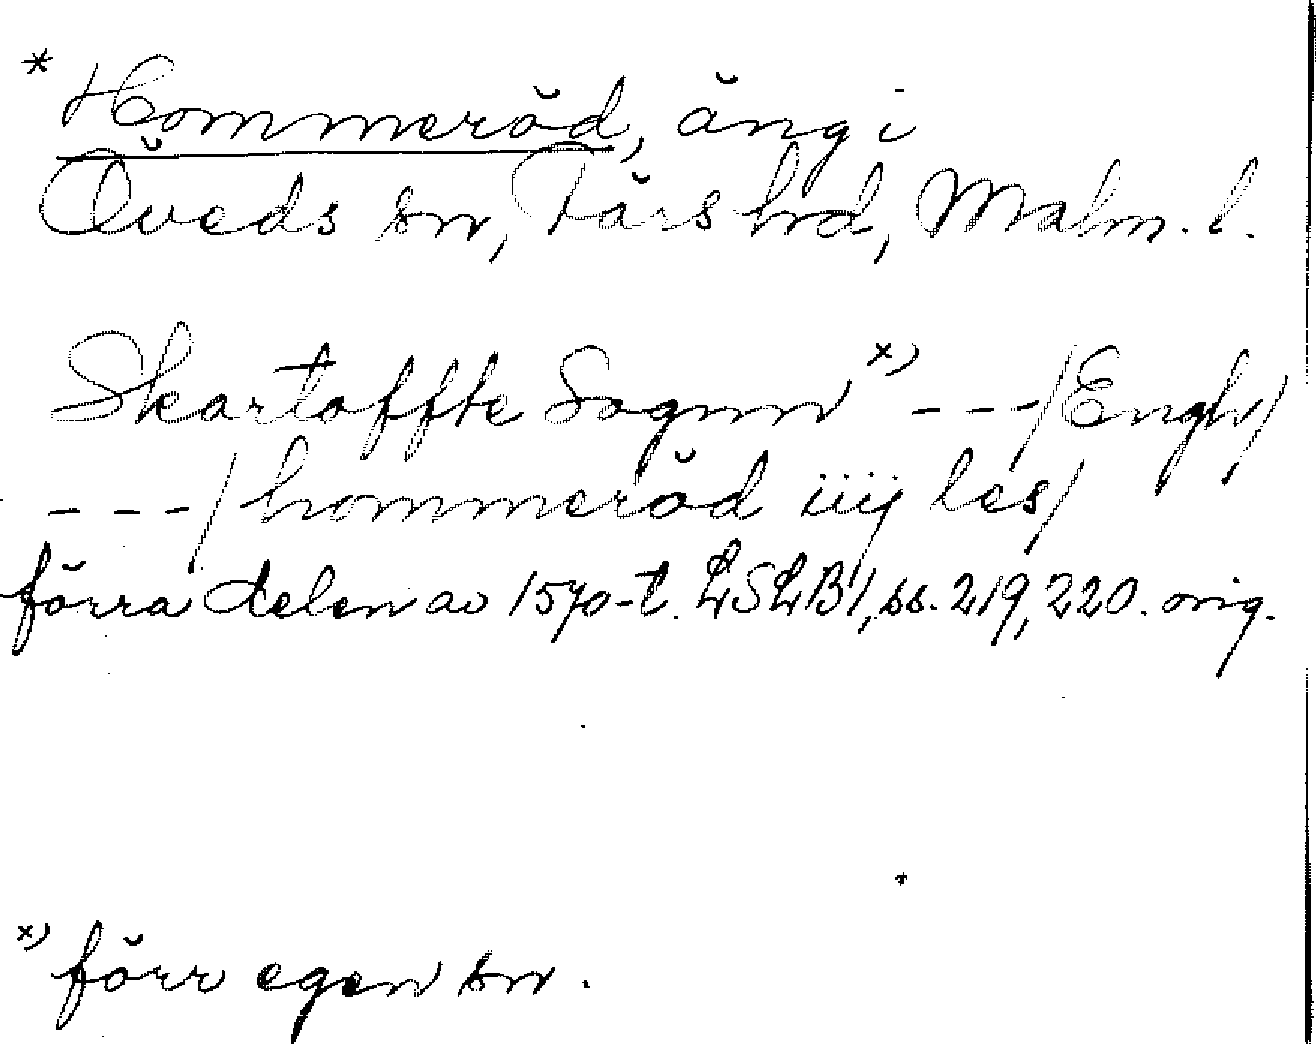 * Hommeröd, äng i
Öveds sn, Färs hd, Malm. l.
Skartoffte Sognn x) - - - / Engh /
- - - / hommeröd iiij les /
förra delen av 1570-t. LSLB1, ss. 219, 220. orig.
x) förr egen sn.